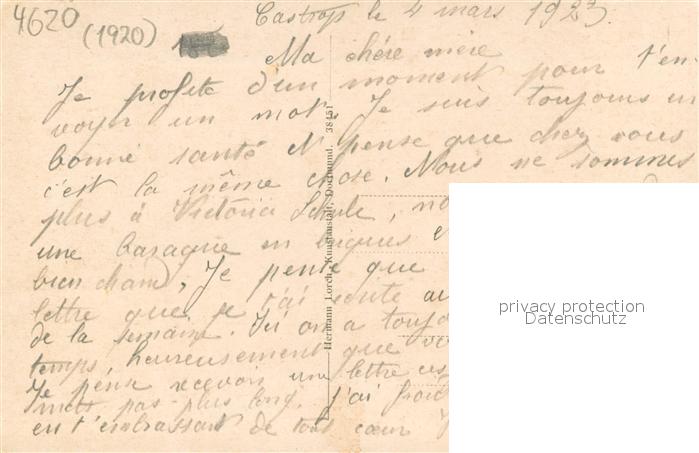 4620
(1920)
Castrop le 4 mars 1923.
Ma chére mère
Je profite d'un moment pour t'en-
voyer un mot. Je suis toujours en
bonne santé et pense que chez vous
c'est la même chose. Nous ne sommes
plus à Victoria Schule, no
une baraque en briques e
bien chaud, Je pense que
lettre que je t'ai au
de la semaine. Ici on a toujo
temps, heureusement que
Je pense recevoir une lettre
mett pas plus long. j'ai froid
en t'embrassant de tout cœur
Hermann Lorch, Kunstanstalt, Dortmund. 38451
privacy protection
Datenschutz